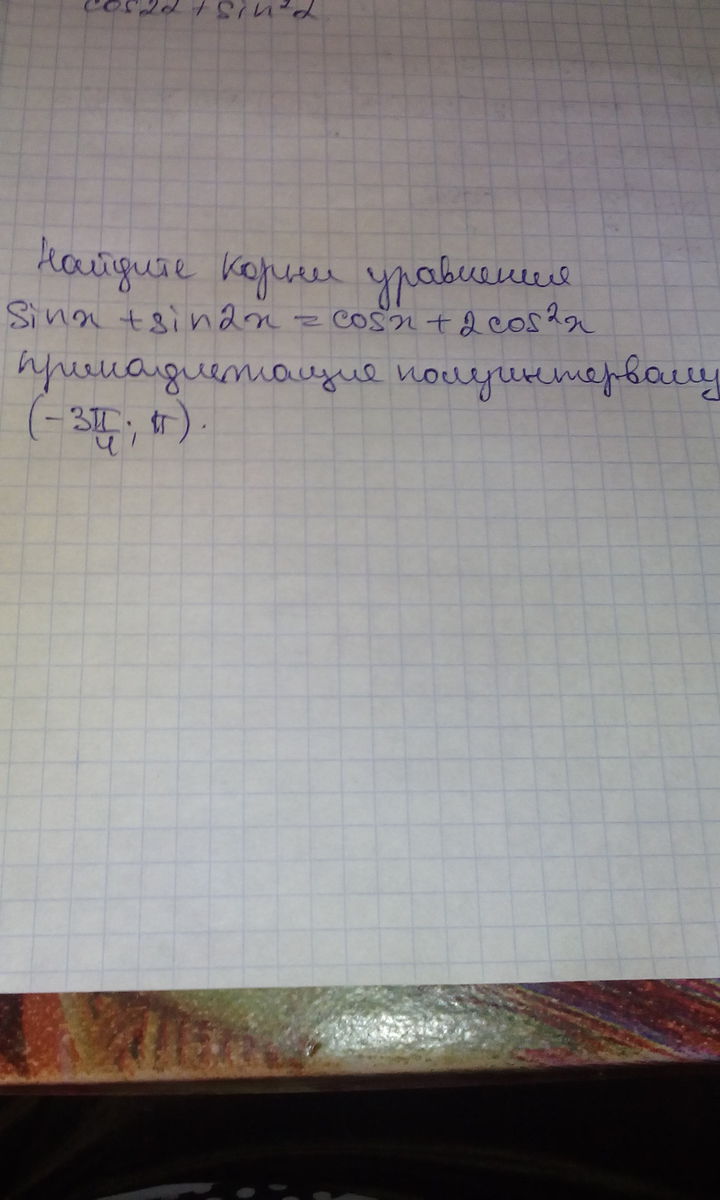 cos2α + sin²α
Найдите корни уравнения
sinx + sin2x = cosx + 2cos²x
принадлежащие полуинтервалу
(-3π/4; π).